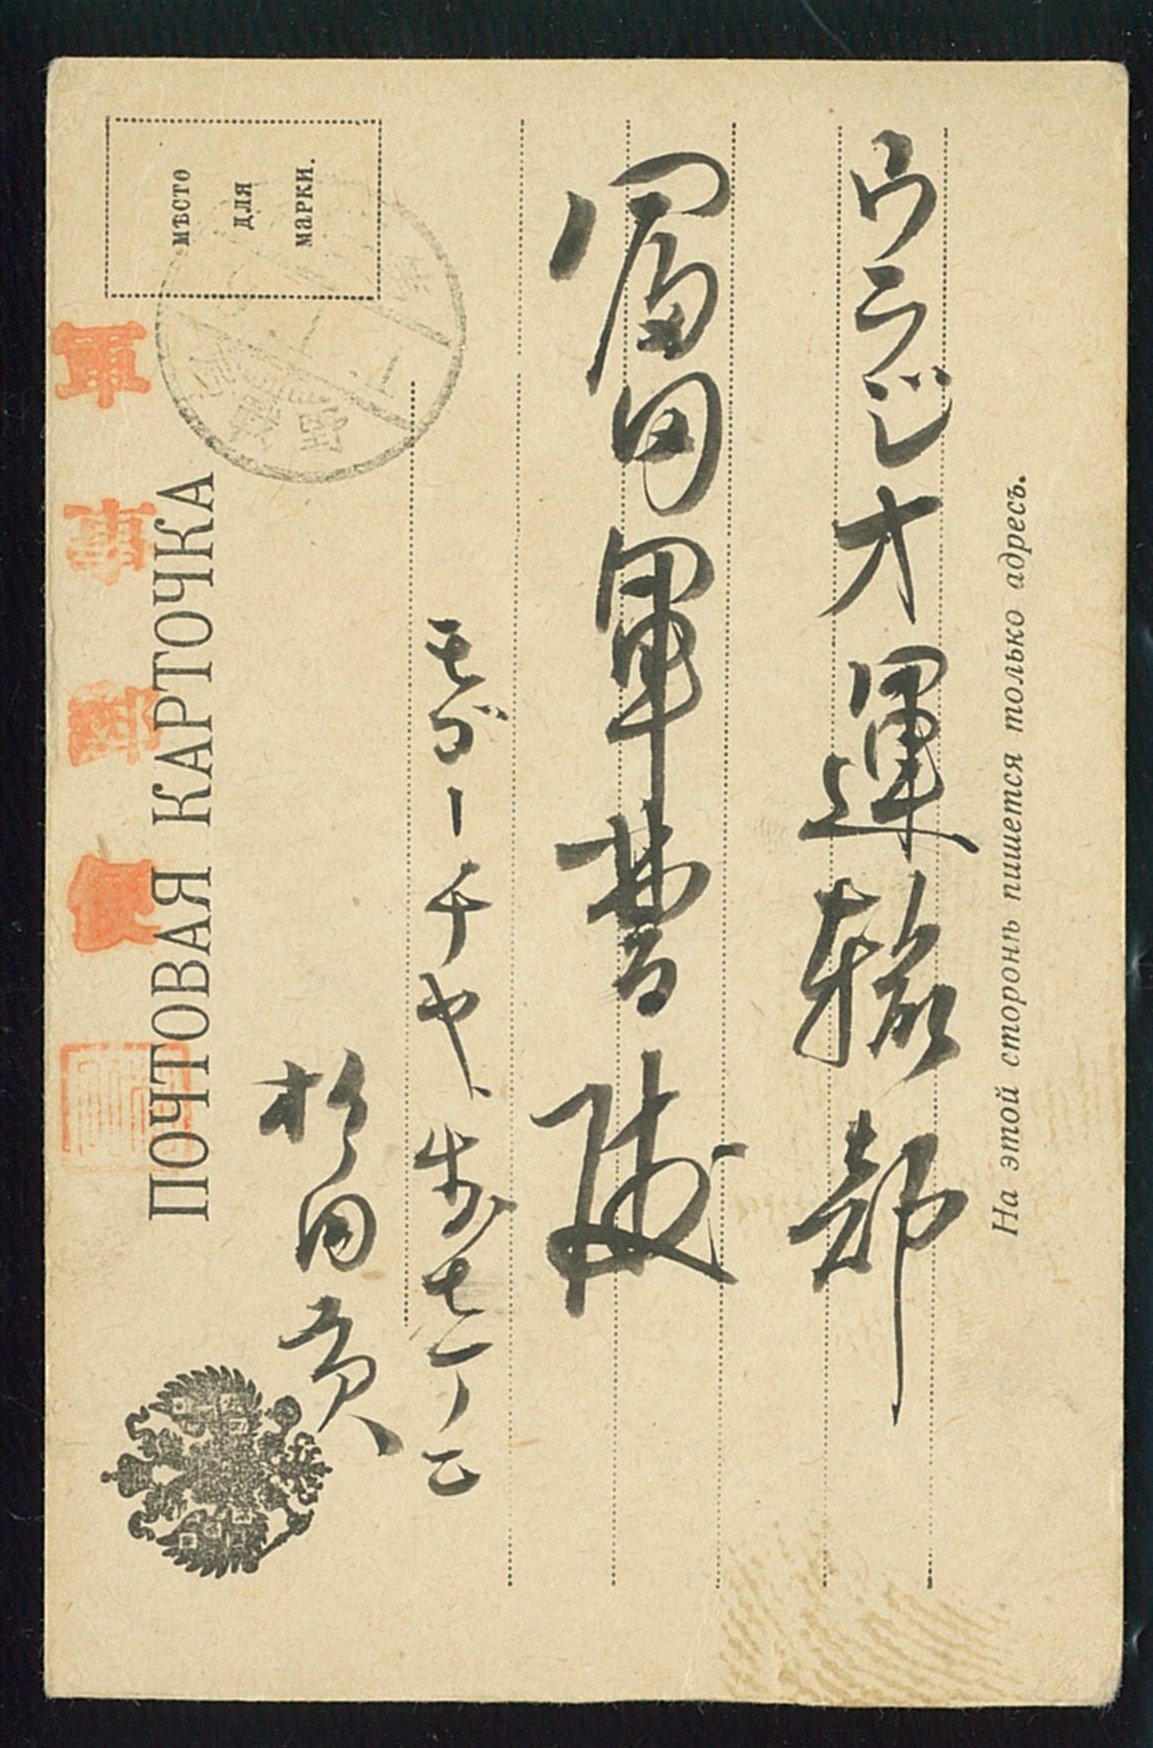 ПОЧТОВАЯ КАРТОЧКА
МѢСТО
ДЛЯ
МАРКИ.
На этой сторонѣ пишется только адресъ.
ウラジオ運輸部
冨田軍曹殿
モゴーチヤ、歩七一ノ二
杉田貢
軍事郵便